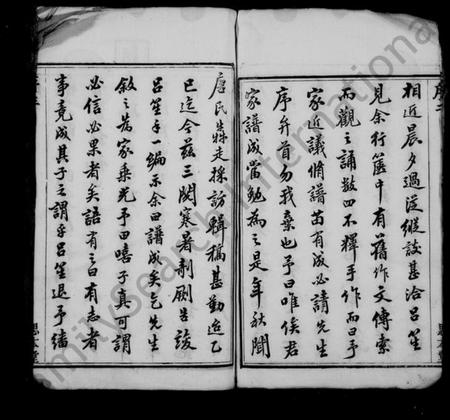 相近晨夕過從縱談甚洽吕笙
見余行篋中有舊作文傳索
而觀之誦數四不釋手作而曰予
家近議脩譜苗有成必請先生
序弁首勿我棄也予曰唯俟君
家譜成當勉為之是年秋聞
唐氏殊走採訪輯稿甚勤迨乙
巳迄今茲三閱寒暑剞劂告竣
吕笙手一編示余曰譜成矣乞先生
敘之為家乘光予曰嘻子真可謂
必信必果者矣語有之曰有志者
事竟成其子之謂乎吕笙退予繙
序二
思本堂